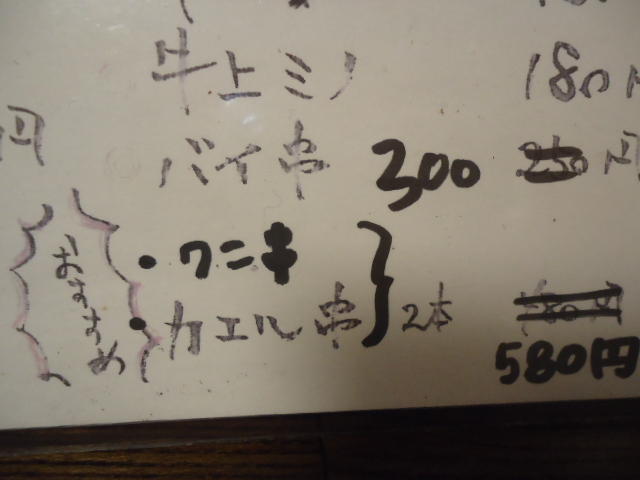 牛上ミノ 180円
円
バイ串 300 250円
おすすめ
・ワニ串
・カエル串 } 2本
580円